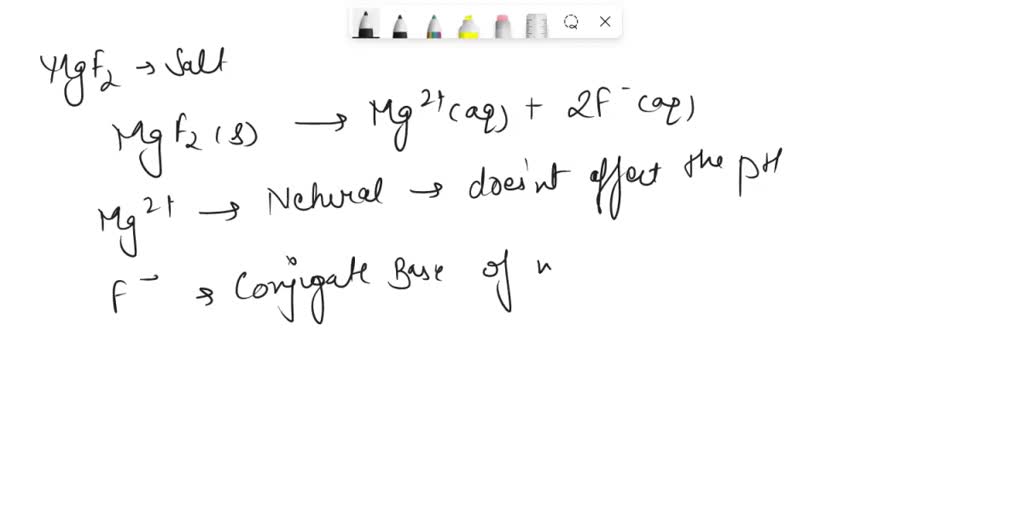 MgF₂ → Salt
MgF₂ (s) → Mg²⁺ (aq) + 2F⁻ (aq)
Mg²⁺ → Netural → does'nt affect the pH
F⁻ → Conjugate Base of w